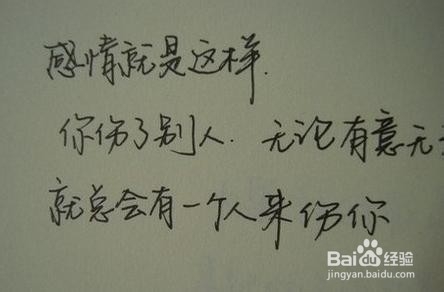 感情就是这样.
你伤了别人. 无论有意无
就总会有一个人来伤你
Baidu 经验
jingyan.baidu.com